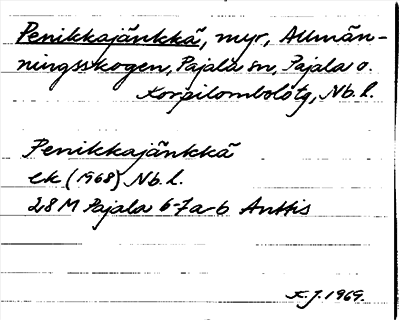 Penikkajänkkä, myr, Allmän-
ningsskogen, Pajala sn, Pajala o.
Korpilombolo tg, Nb. l.
Penikkajänkkä
ek (1968) Nb. l.
28 M Pajala 6-7 a-b Anttis
K. J. 1969.